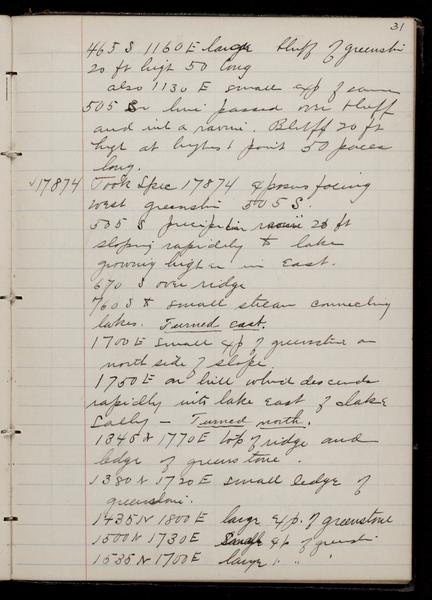 31
465 S 1160 E large bluff of greenstn
20 ft high 50 long
also 1130 E small exp of same
505 S on line passed over bluff
and into a ravine. Bluff 20 ft
high at highest point 50 paces
long.
✓17874 Took Spec 17874 exposure facing
west greenstn 505 S.
505 S precip in ravine 20 ft
sloping rapidly to lake
growing higher in East.
670 S over ridge
760 S to small stream connecting
lakes. Turned east.
1700 E small exp of greenstone on
north side of slope
1750 E on hill which descends
rapidly into lake East of lake
Sally — Turned north.
1345 N 1770 E top of ridge and
ledge of greenstone.
1380 N 1720 E small ledge of
greenstone.
1435 N 1800 E large exp. of greenstone
1500 N 1730 E small exp of greenstn
1535 N 1700 E large " " "